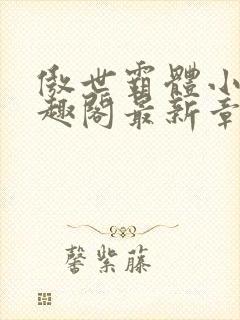 傲世霸體小
趣閣最新章
馨紫藤